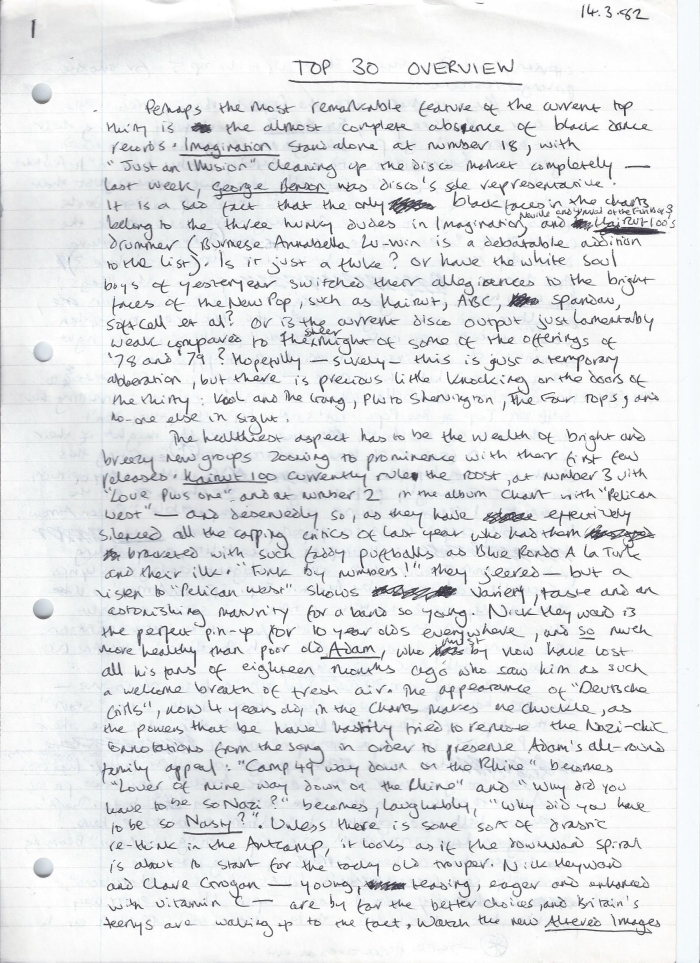 14.3.82
1
TOP 30 OVERVIEW
Perhaps the most remarkable feature of the current top
thirty is the almost complete absence of black dance
records. Imagination stand alone at number 18, with
"Just an Illusion" cleaning up the disco market completely —
last week, George Benson was disco's sole representative.
It is a sad fact that the only black faces in the charts
belong to the three hunky dudes in Imagination, Neville and Lynval of the Fun Boy 3 and Haircut 100's
drummer (Burmese Annabella Lu-win is a debatable addition
to the list). Is it just a fluke? Or have the white soul
boys of yesteryear switched their allegiances to the bright
faces of the New Pop, such as Haircut, ABC, Spandau,
Soft Cell et al? Or is the current disco output just lamentably
weak compared to the sheer might of some of the offerings of
'78 and '79? Hopefully — surely — this is just a temporary
abberation, but there is precious little knocking on the doors of
the thirty: Kool and the Gang, Pluto Shervington, The Four Tops, and
no-one else in sight.
The healthiest aspect has to be the wealth of bright and
breezy new groups zooming to prominence with their first few
releases. Haircut 100 currently rule the roost, at number 3 with
"Love Plus one" and at number 2 in the album chart with "Pelican
West" — and deservedly so, as they have effectively
silenced all the carping critics of last year who had them
bracketed with such faddy puffballs as Blue Rondo A la Turk
and their ilk. "Funk by numbers!" they jeered — but a
listen to "Pelican West" shows variety, taste and an
astonishing maturity for a band so young. Nick Heyward is
the perfect pin-up for 10 year olds everywhere, and so much
more healthy than poor old Adam, who must by now have lost
all his fans of eighteen months ago who saw him as such
a welcome breath of fresh air. The appearance of "Deutsche
Girls", now 4 years old, in the charts makes me chuckle, as
the powers that be have hastily tried to remove the Nazi-chic
connotations from the song in order to preserve Adam's all-round
family appeal: "Camp 49 way down on the Rhine" becomes
"Lover of mine way down on the Rhine" and "Why did you
have to be so Nazi?" becomes, laughably, "Why did you have
to be so Nasty?". Unless there is some sort of drastic
re-think in the Antcamp, it looks as if the downward spiral
is about to start for the tacky old trouper. Nick Heyward
and Clare Grogan — young, teasing, eager and enhanced
with vitamin C — are by far the better choices, and Britain's
teenys are waking up to the fact. Watch the new Altered Images